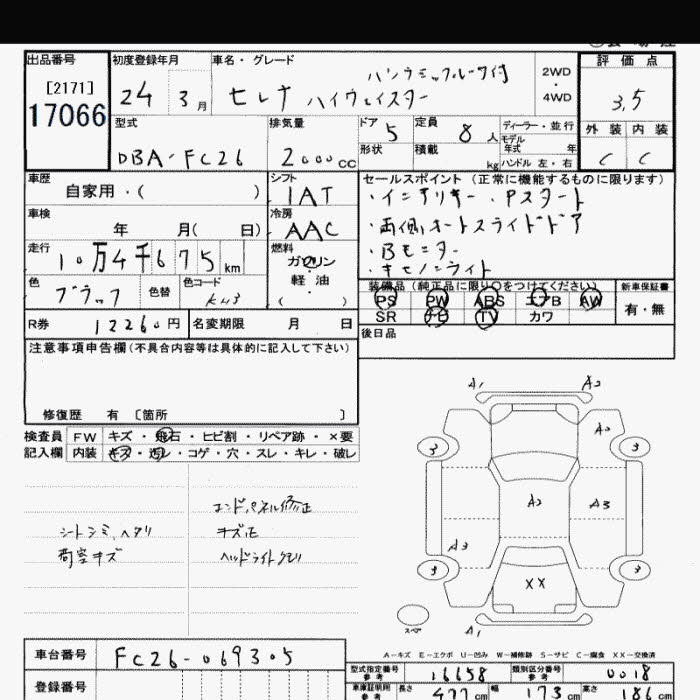 出品番号 初度登録年月 車名・グレード 評価点
[2171] ハンクミックルーフ付 2WD・4WD
17066 24 3月 セレナ ハイウェイスター 3.5
型式 排気量 ドア 5 定員 8人 ディーラー・並行 外装 内装
DBA-FC26 2000cc 形状 積載 kg モデル年式 年 ハンドル 左・右 C C
車歴 シフト セールスポイント (正常に機能するものに限ります)
自家用・( ) IAT ・インテリキー・Pスタート
車検 冷房 ・両側オートスライドドア
年 月( 日) AAC ・Bモニター
走行 燃料 ・キセノンライト
10万4千675km ガソリン
色 色替 色コード 軽油 装備品 (純正品に限り○をつけてください) 新車保証書
ブラック ( ) PS PW ABS エアB AW 有・無
R券 12260円 名変期限 月 日 SR ナビ TV カワ
注意事項申告欄(不具合内容等は具体的に記入して下さい) 後日品
修復歴 有 〔箇所 〕
検査員 FW キズ・飛石・ヒビ割・リペア跡・×要
記入欄 内装 キズ・汚レ・コゲ・穴・スレ・キレ・破レ
A1 A2
A2
3 3
A2 A3
A3
3 3
XX
A1
エンドパネル修正
シートシミ、ヘタリ キズ大
荷室キズ ヘッドライトクモリ
スペア
A-キズ E-エクボ U-凹み W-補修跡 S-サビ C-腐食 XX-交換済
車台番号 FC26-069305
登録番号
型式指定番号 参考 16658 類別区分番号 参考 0018
車庫証明用 参考 長さ 477cm 幅 173cm 高さ 186cm